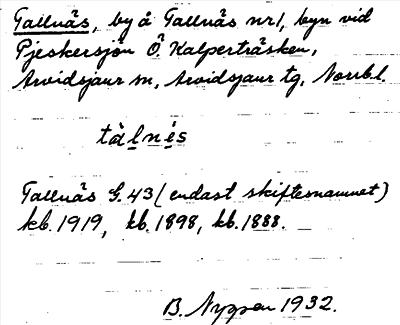 Tallnäs, by å Tallnäs nr1, byn vid
Pjeskersjön Ö. Kalperträsken,
Arvidsjaur sn, Arvidsjaur tg, Norrb.l.
tàlnés
Tallnäs G.43 (endast skiftesnamnet)
kb. 1919, kb. 1898, kb. 1888.
B. Nygren 1932.